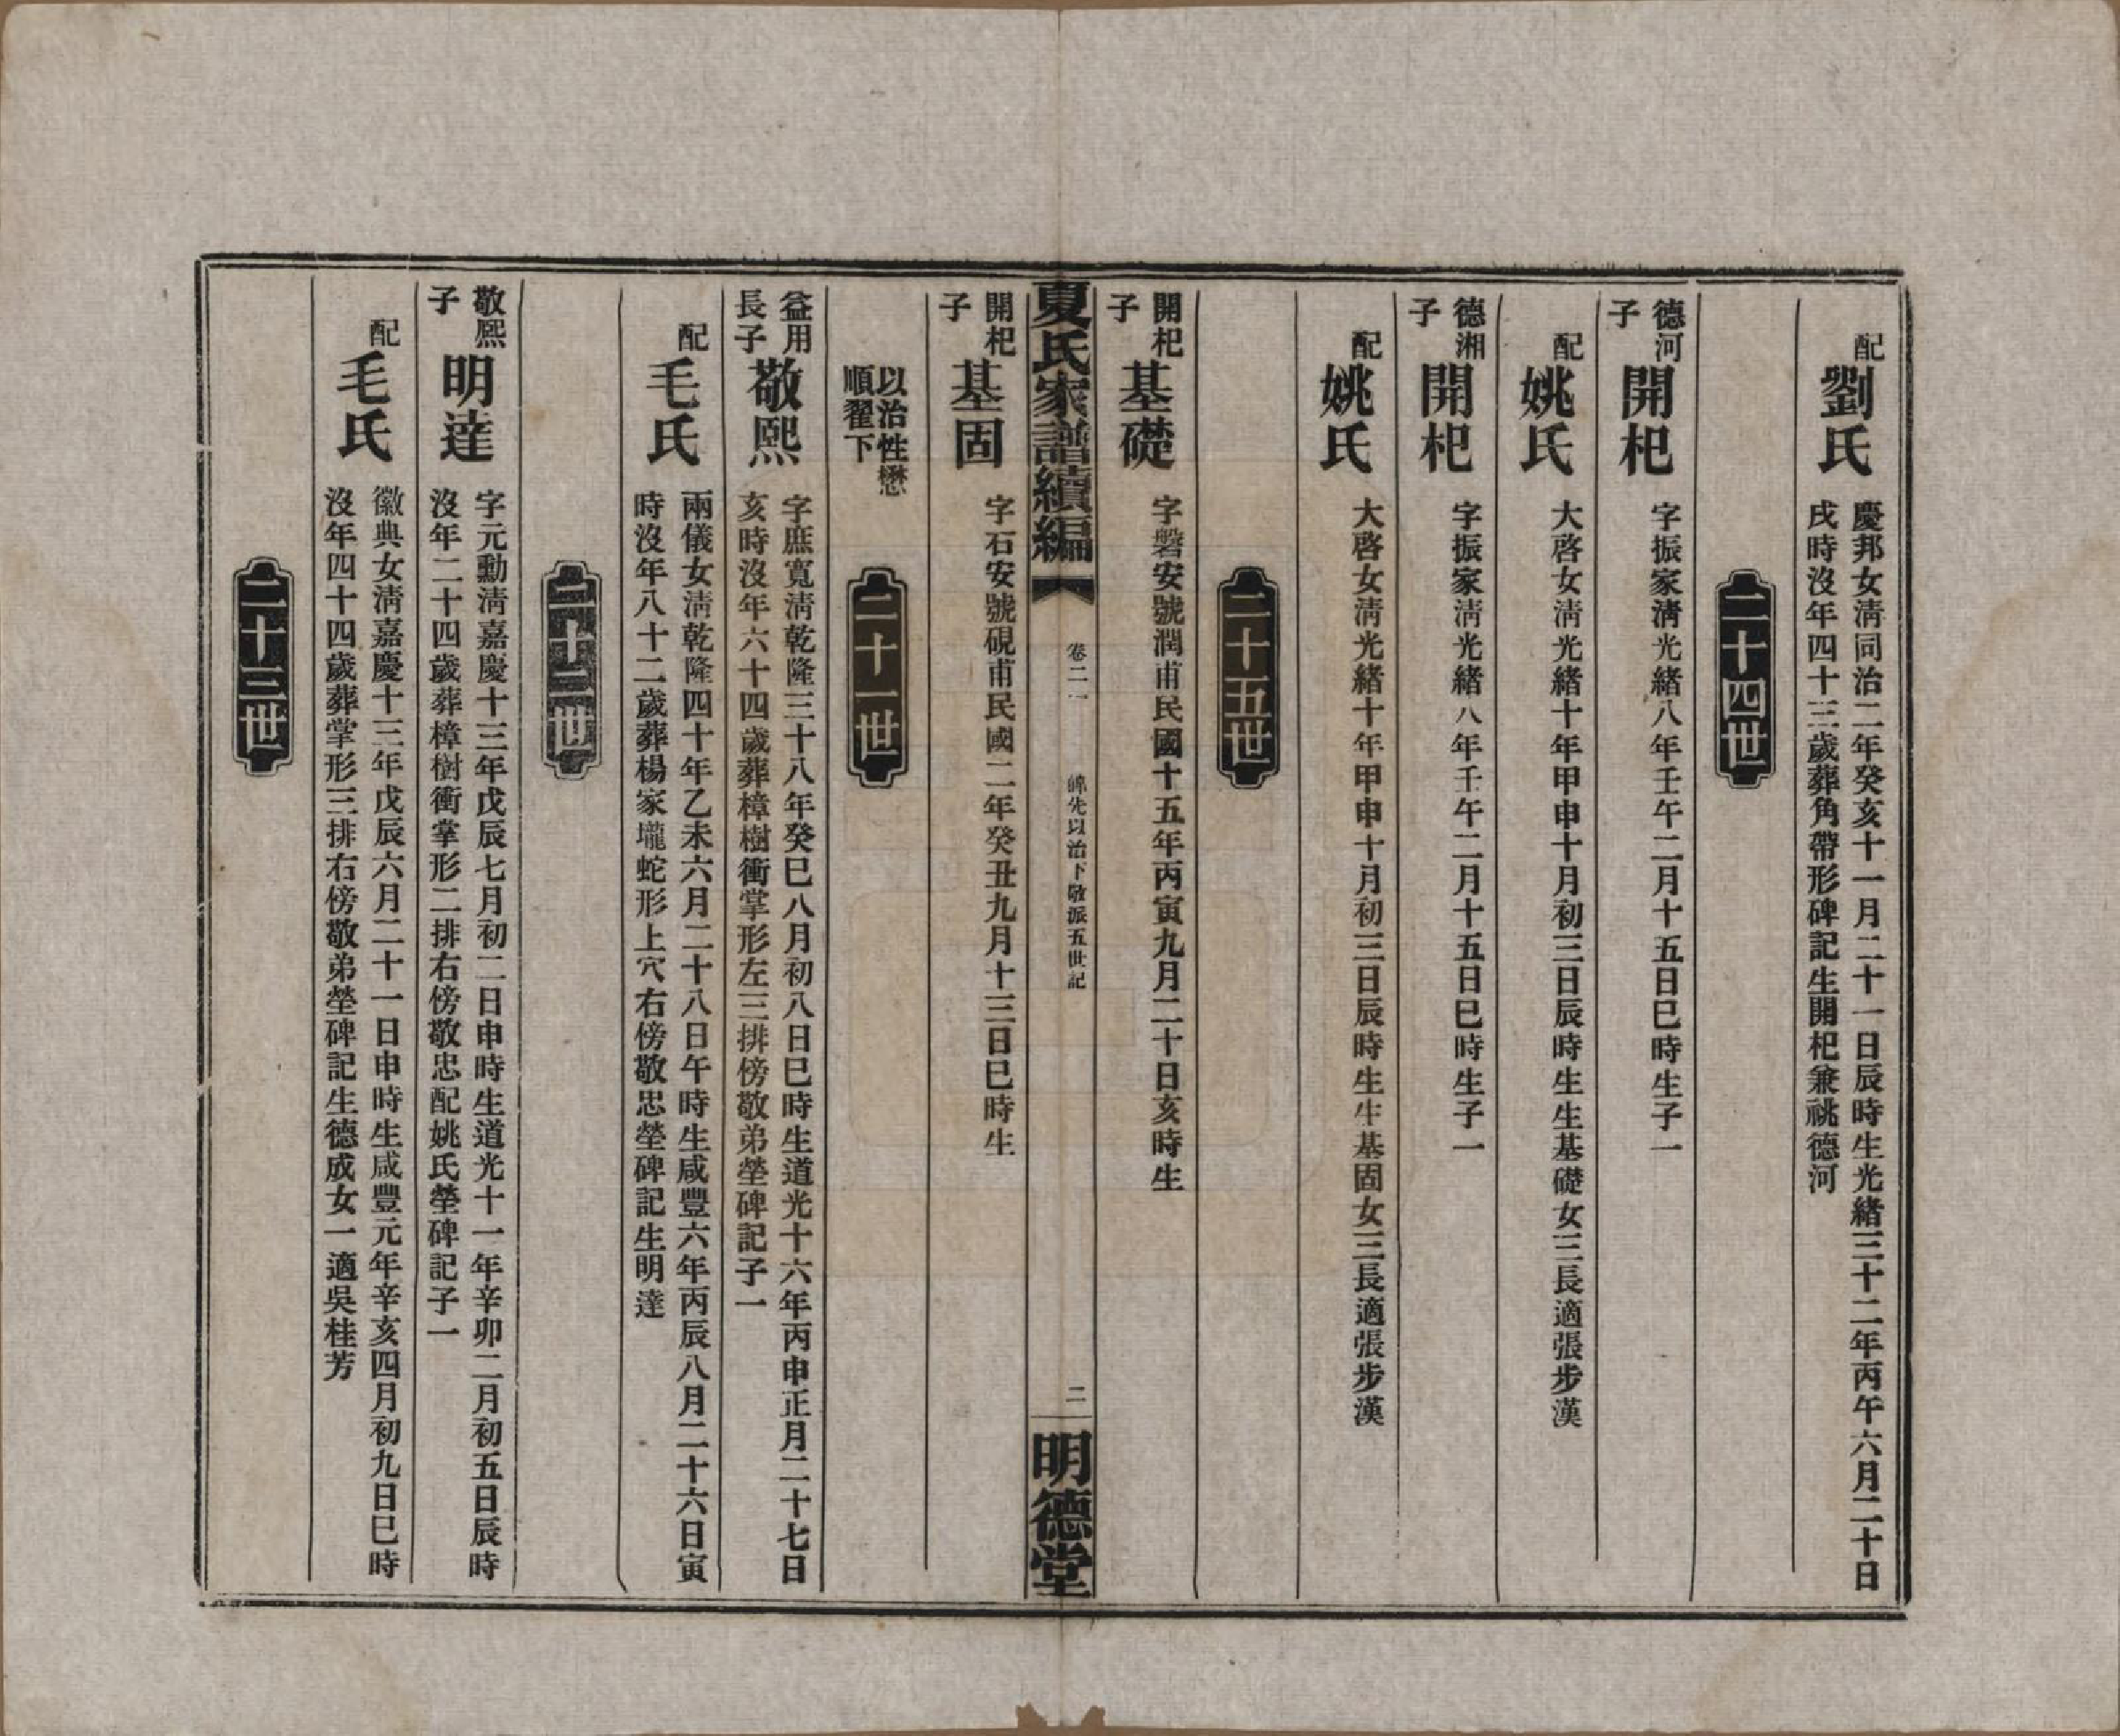 配
劉氏
慶邦女清同治二年癸亥十一月二十一日辰時生光緒三十二年丙午六月二十日
戌時沒年四十三歲葬角帶形碑記生開杞兼祧德河
二十四世
德河
子
開杞
字振家淸光緒八年壬午二月十五日巳時生子一
配
姚氏
大啓女淸光緒十年甲申十月初三日辰時生生基礎女三長適張步漢
德湘
子
開杞
字振家淸光緒八年壬午二月十五日巳時生子一
配
姚氏
大啓女淸光緒十年甲申十月初三日辰時生生基固女三長適張步漢
二十五世
開杞
子
基礎
字磐安號潤甫民國十五年丙寅九月二十日亥時生
夏氏家譜續編
卷二一
先以治下敬派五世記
二
明德堂
開杞
子
基固
字石安號硯甫民國二年癸丑九月十三日巳時生
以治性懋
順翟下
二十一世
益用
長子
敬熙
字庶寬淸乾隆三十八年癸巳八月初八日巳時生道光十六年丙申正月二十七日
亥時沒年六十四歲葬樟樹衝掌形左三排傍敬弟塋碑記子一
配
毛氏
兩儀女淸乾隆四十年乙未六月二十八日午時生咸豐六年丙辰八月二十六日寅
時沒年八十二歲葬楊家壠蛇形上穴右傍敬忠塋碑記生明達
二十二世
敬熙
子
明達
字元勳淸嘉慶十三年戊辰七月初二日申時生道光十一年辛卯二月初五日辰時
沒年二十四歲葬樟樹衝掌形二排右傍敬忠配姚氏塋碑記子一
配
毛氏
徽典女淸嘉慶十三年戊辰六月二十一日申時生咸豐元年辛亥四月初九日巳時
沒年四十四歲葬掌形三排右傍敬弟塋碑記生德成女一適吳桂芳
二十三世